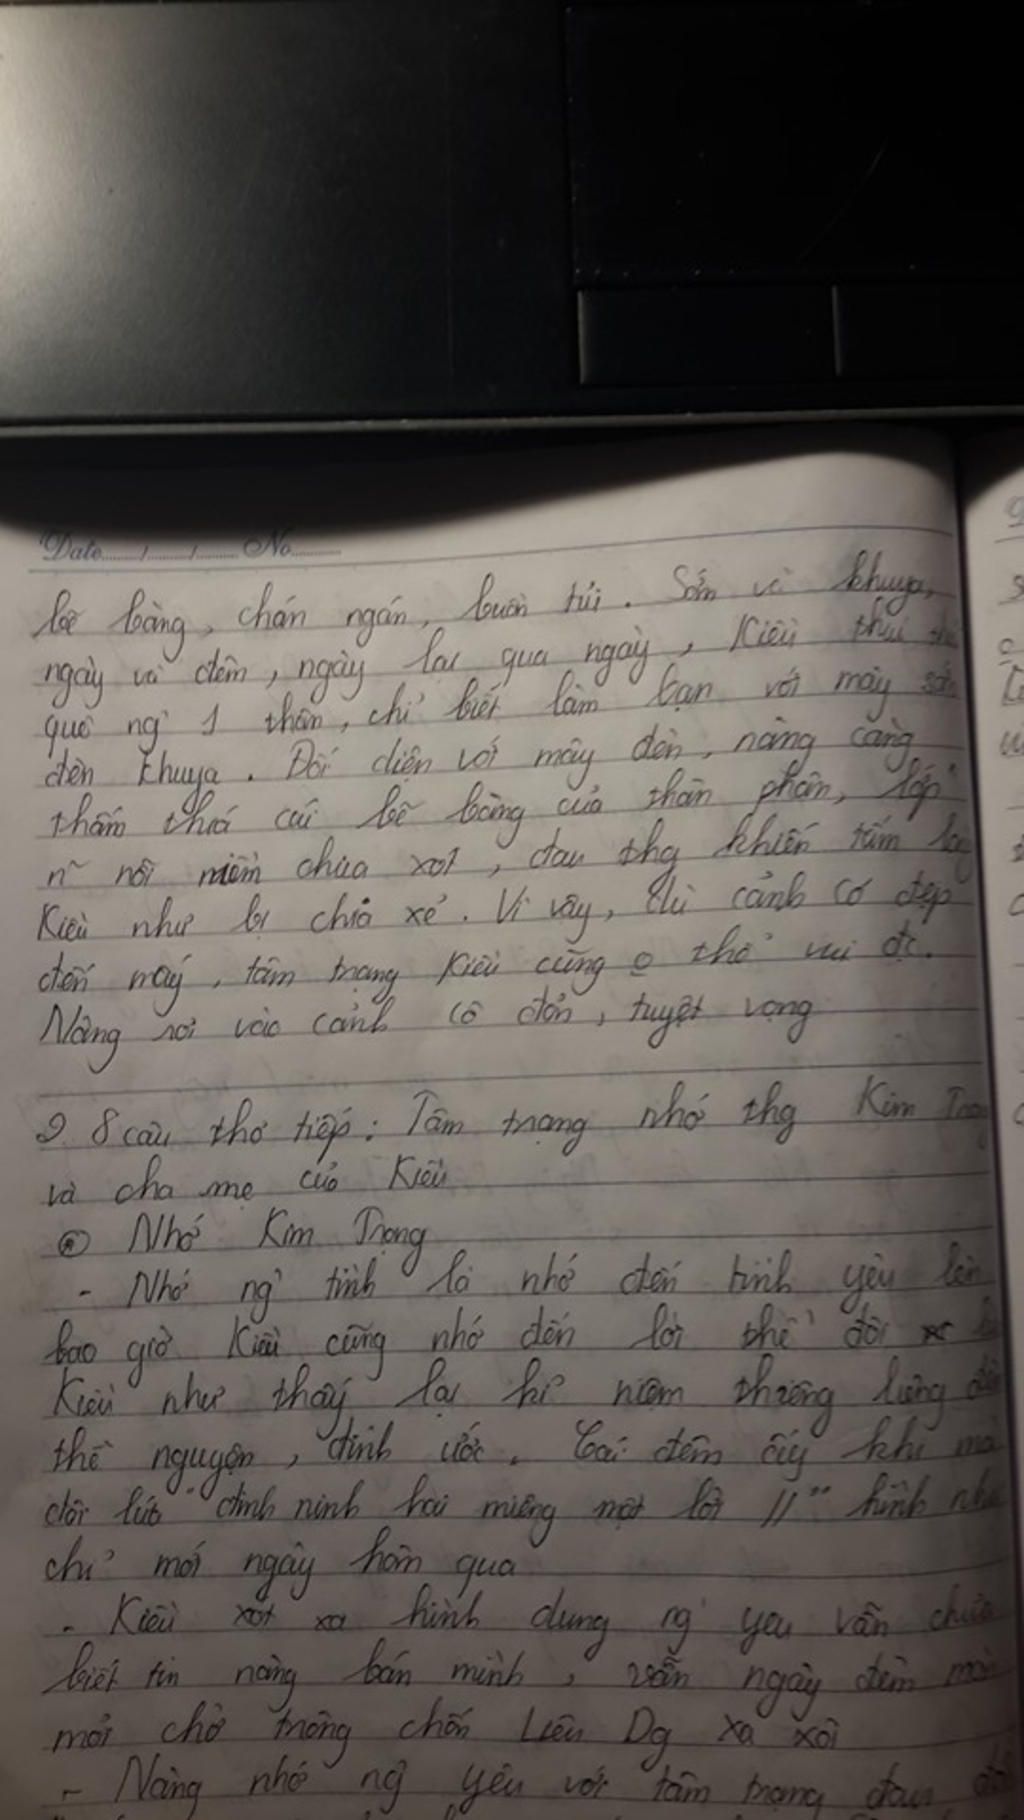 Date...../...../..... No.....
bẽ bàng, chán ngán, buồn tủi. Sớm và khuya,
ngày và đêm, ngày lại qua ngày, Kiều thui
quê ng' 1 thân, chỉ biết làm bạn với mây sớm
đèn khuya. Đối diện với mây đèn, nàng càng
thấm thía cái bẽ bàng của thân phận, lớp
n~ nỗi niềm chua xót, đau thg khiến tấm lòng
Kiều như bị chia xẻ. Vì vậy, dù cảnh có đẹp
đến mấy, tâm trạng Kiều cũng o thể vui đc.
Nàng rơi vào cảnh cô đơn, tuyệt vọng
2. 8 câu thơ tiếp: Tâm trạng nhớ thg Kim Trọng
và cha mẹ của Kiều
a Nhớ Kim Trọng
- Nhớ ng' tình là nhớ đến tình yêu lên
bao giờ Kiều cũng nhớ đến lời thề đôi
Kiều như thấy lại kỉ niệm thiêng liêng đêm
thề nguyện, đính ước. Cái đêm ấy khi mà
đôi lứa "đinh ninh hai miệng một lời //" hình như
chỉ mới ngày hôm qua
- Kiều xót xa hình dung ng' yêu vẫn chưa
biết tin nàng bán mình, vẫn ngày đêm mòn
mỏi chờ trông chốn Liêu Dg xa xôi
- Nàng nhớ ng' yêu với tâm trạng đau đớn